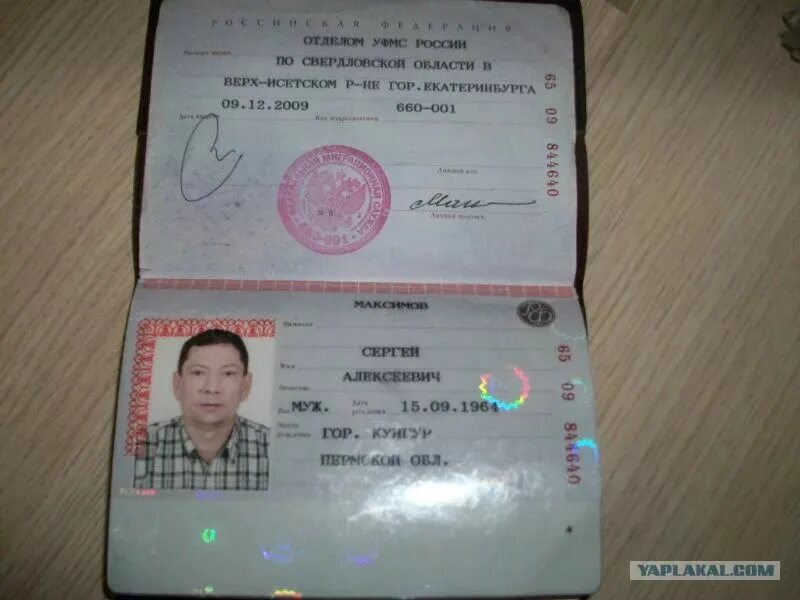 РОССИЙСКАЯ ФЕДЕРАЦИЯ
Паспорт выдан
ОТДЕЛОМ УФМС РОССИИ
ПО СВЕРДЛОВСКОЙ ОБЛАСТИ В
ВЕРХ-ИСЕТСКОМ Р-НЕ ГОР.ЕКАТЕРИНБУРГА
09.12.2009 660-001
Дата выдачи Код подразделения
65 09 844640
Личный код
ФЕДЕРАЛЬНАЯ МИГРАЦИОННАЯ СЛУЖБА
660-001
Личная подпись
МАКСИМОВ
Фамилия
СЕРГЕЙ
Имя
АЛЕКСЕЕВИЧ
Отчество
Пол МУЖ. Дата рождения 15.09.1964
Место рождения ГОР. КУНГУР
ПЕРМСКОЙ ОБЛ.
65 09 844640
YAPLAKAL.COM